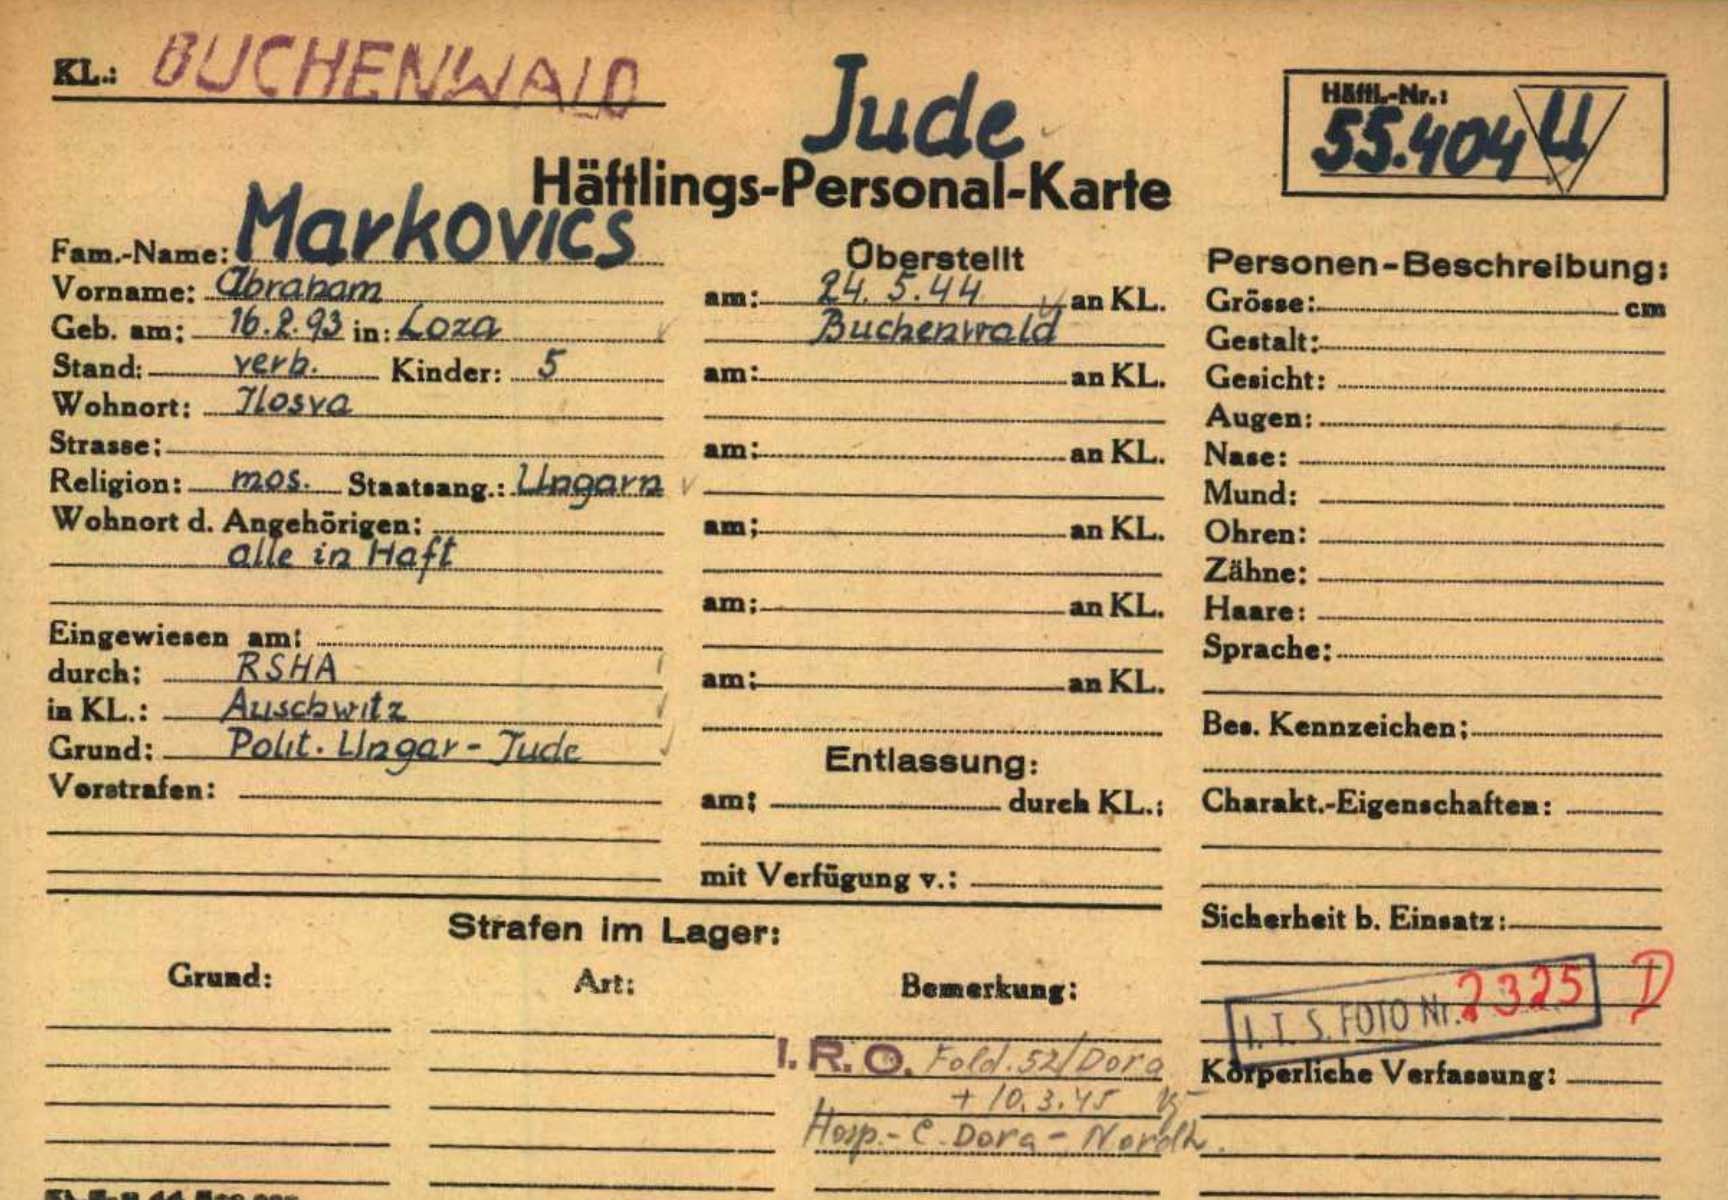 KL.: BUCHENWALD
Jude
Häftl.-Nr.:
55.404 U
Häftlings-Personal-Karte
Fam.-Name: Markovics
Vorname: Abraham
Geb. am: 16.2.93 in: Loza
Stand: verh. Kinder: 5
Wohnort: Ilosva
Strasse:
Religion: mos. Staatsang.: Ungarn
Wohnort d. Angehörigen:
alle in Haft
Eingewiesen am:
durch: RSHA
in KL.: Auschwitz
Grund: Polit. Ungar-Jude
Vorstrafen:
Überstellt
am: 24.5.44 an KL.
Buchenwald
am: an KL.
am: an KL.
am: an KL.
am: an KL.
am: an KL.
Entlassung:
am: durch KL.:
mit Verfügung v.:
Personen-Beschreibung:
Grösse: cm
Gestalt:
Gesicht:
Augen:
Nase:
Mund:
Ohren:
Zähne:
Haare:
Sprache:
Bes. Kennzeichen:
Charakt.-Eigenschaften:
Sicherheit b. Einsatz:
I.T.S. FOTO Nr. 2325 D
Körperliche Verfassung:
Strafen im Lager:
Grund: Art: Bemerkung:
I.R.O. Fold. 52/Dora
+ 10.3.45
Hosp.- C. Dora - Nordh.